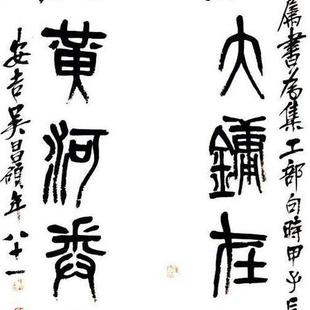 書為集工部句時甲子
大鏞在
黃河
安吉吳昌碩年八十一